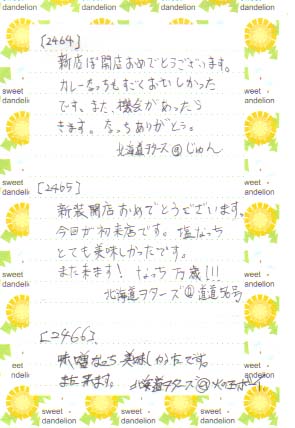 [2464]
新店ぽ開店おめでとうございます。
カレーなっちもすごくおいしかった
です。また、機会があったら
きます。なっちありがとう。
北海道ヲターズ@じゅん
[2465]
新装開店おめでとうございます。
今回が初来店です。塩なっち
とても美味しかったです。
また来ます！なっち万歳!!!
北海道ヲターズ@道道56号
[2466]
味噌なっち美味しかったです。
また来ます。北海道ヲターズ@火の玉ボーイ
sweet dandelion